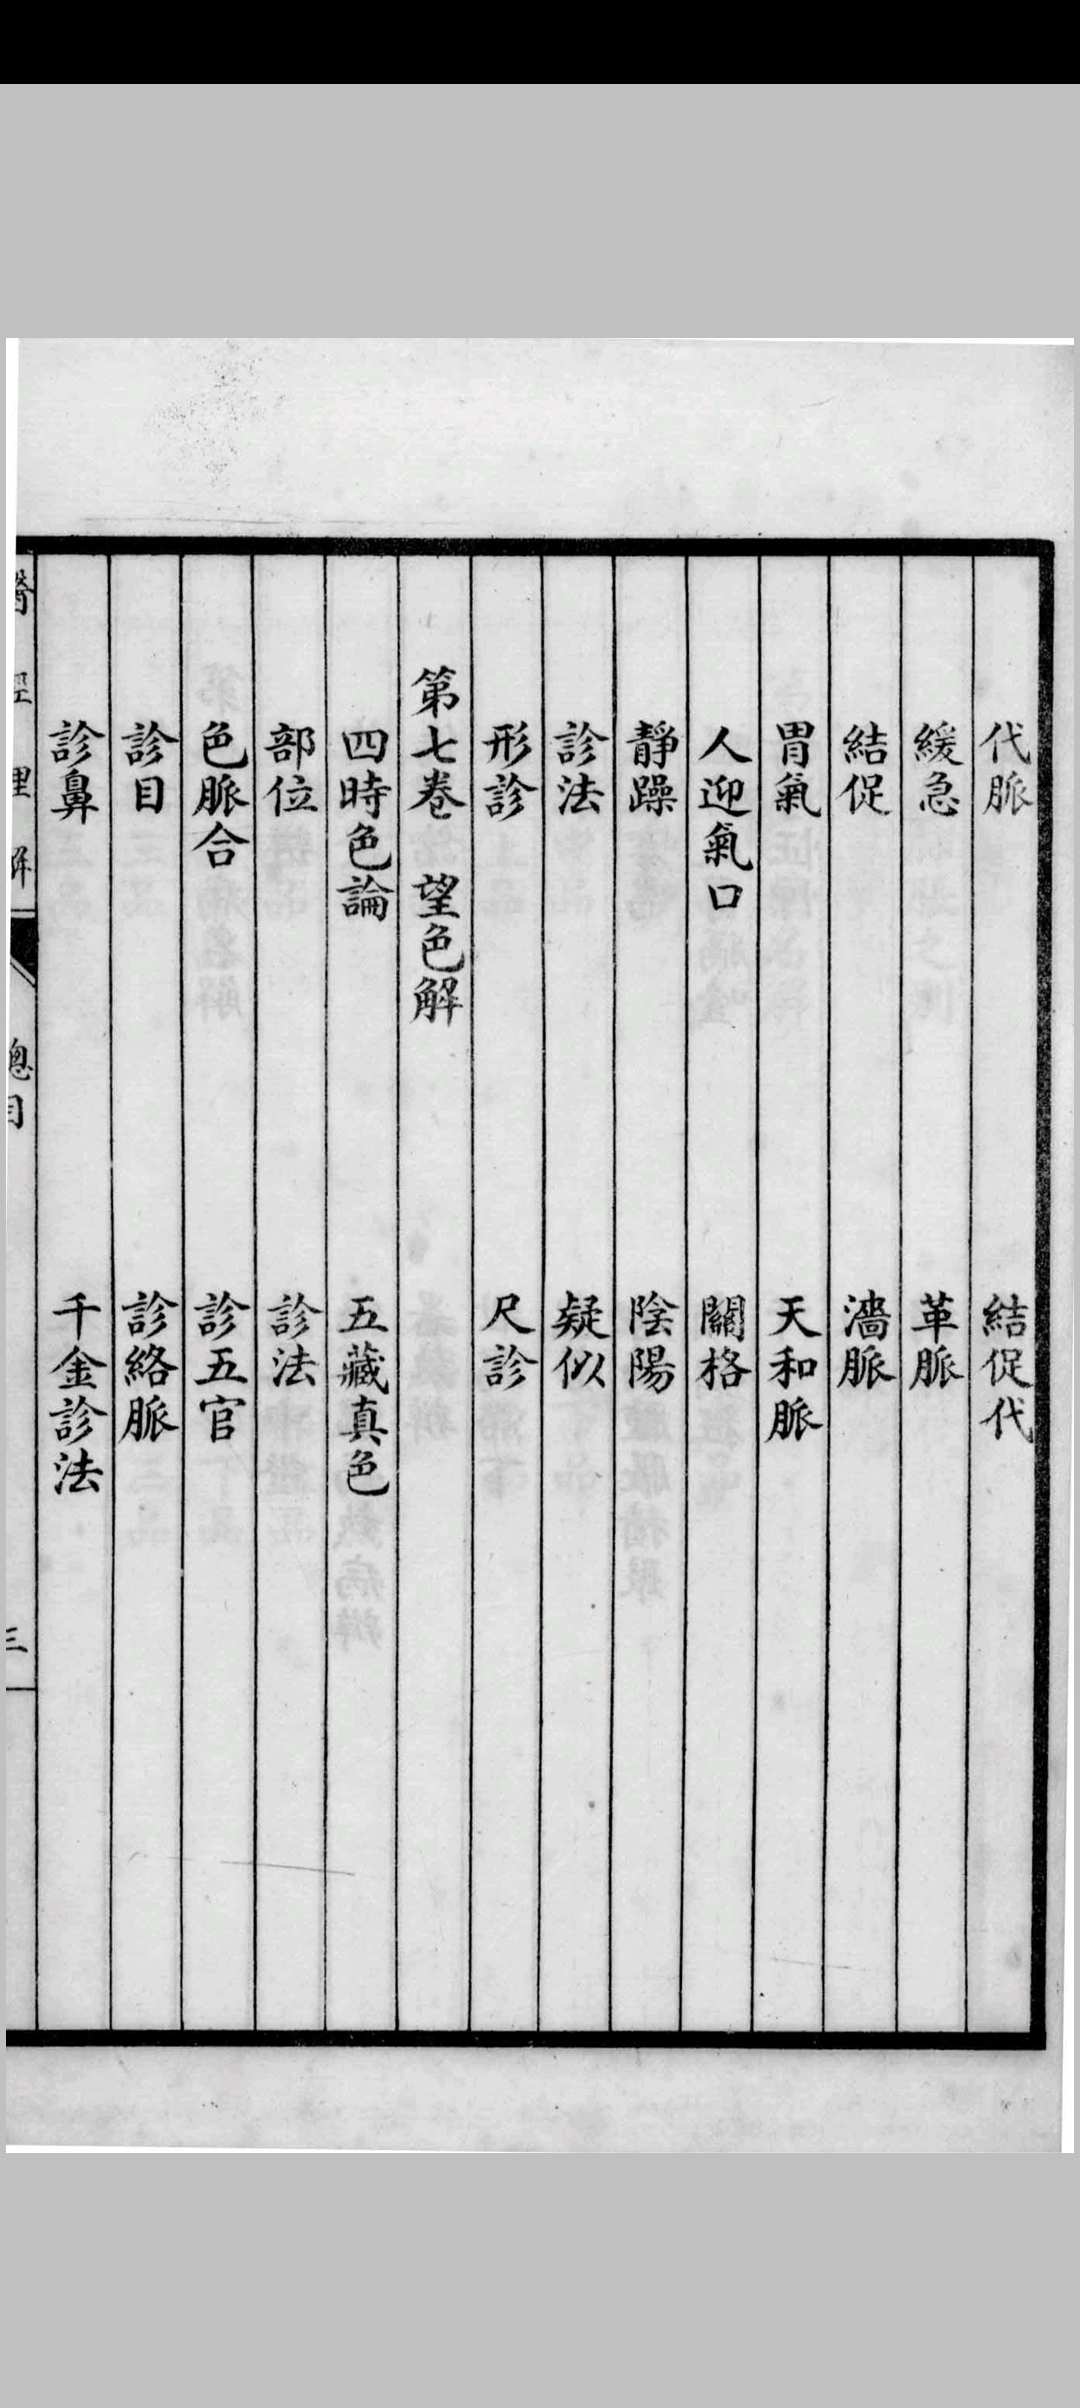 代脈 結促代
緩急 革脈
結促 濇脈
胃氣 天和脈
人迎氣口 關格
靜躁 陰陽
診法 疑似
形診 尺診
第七卷 望色解
四時色論 五藏真色
部位 診法
色脈合 診五官
診目 診絡脈
診鼻 千金診法
醫經理解 總目 三